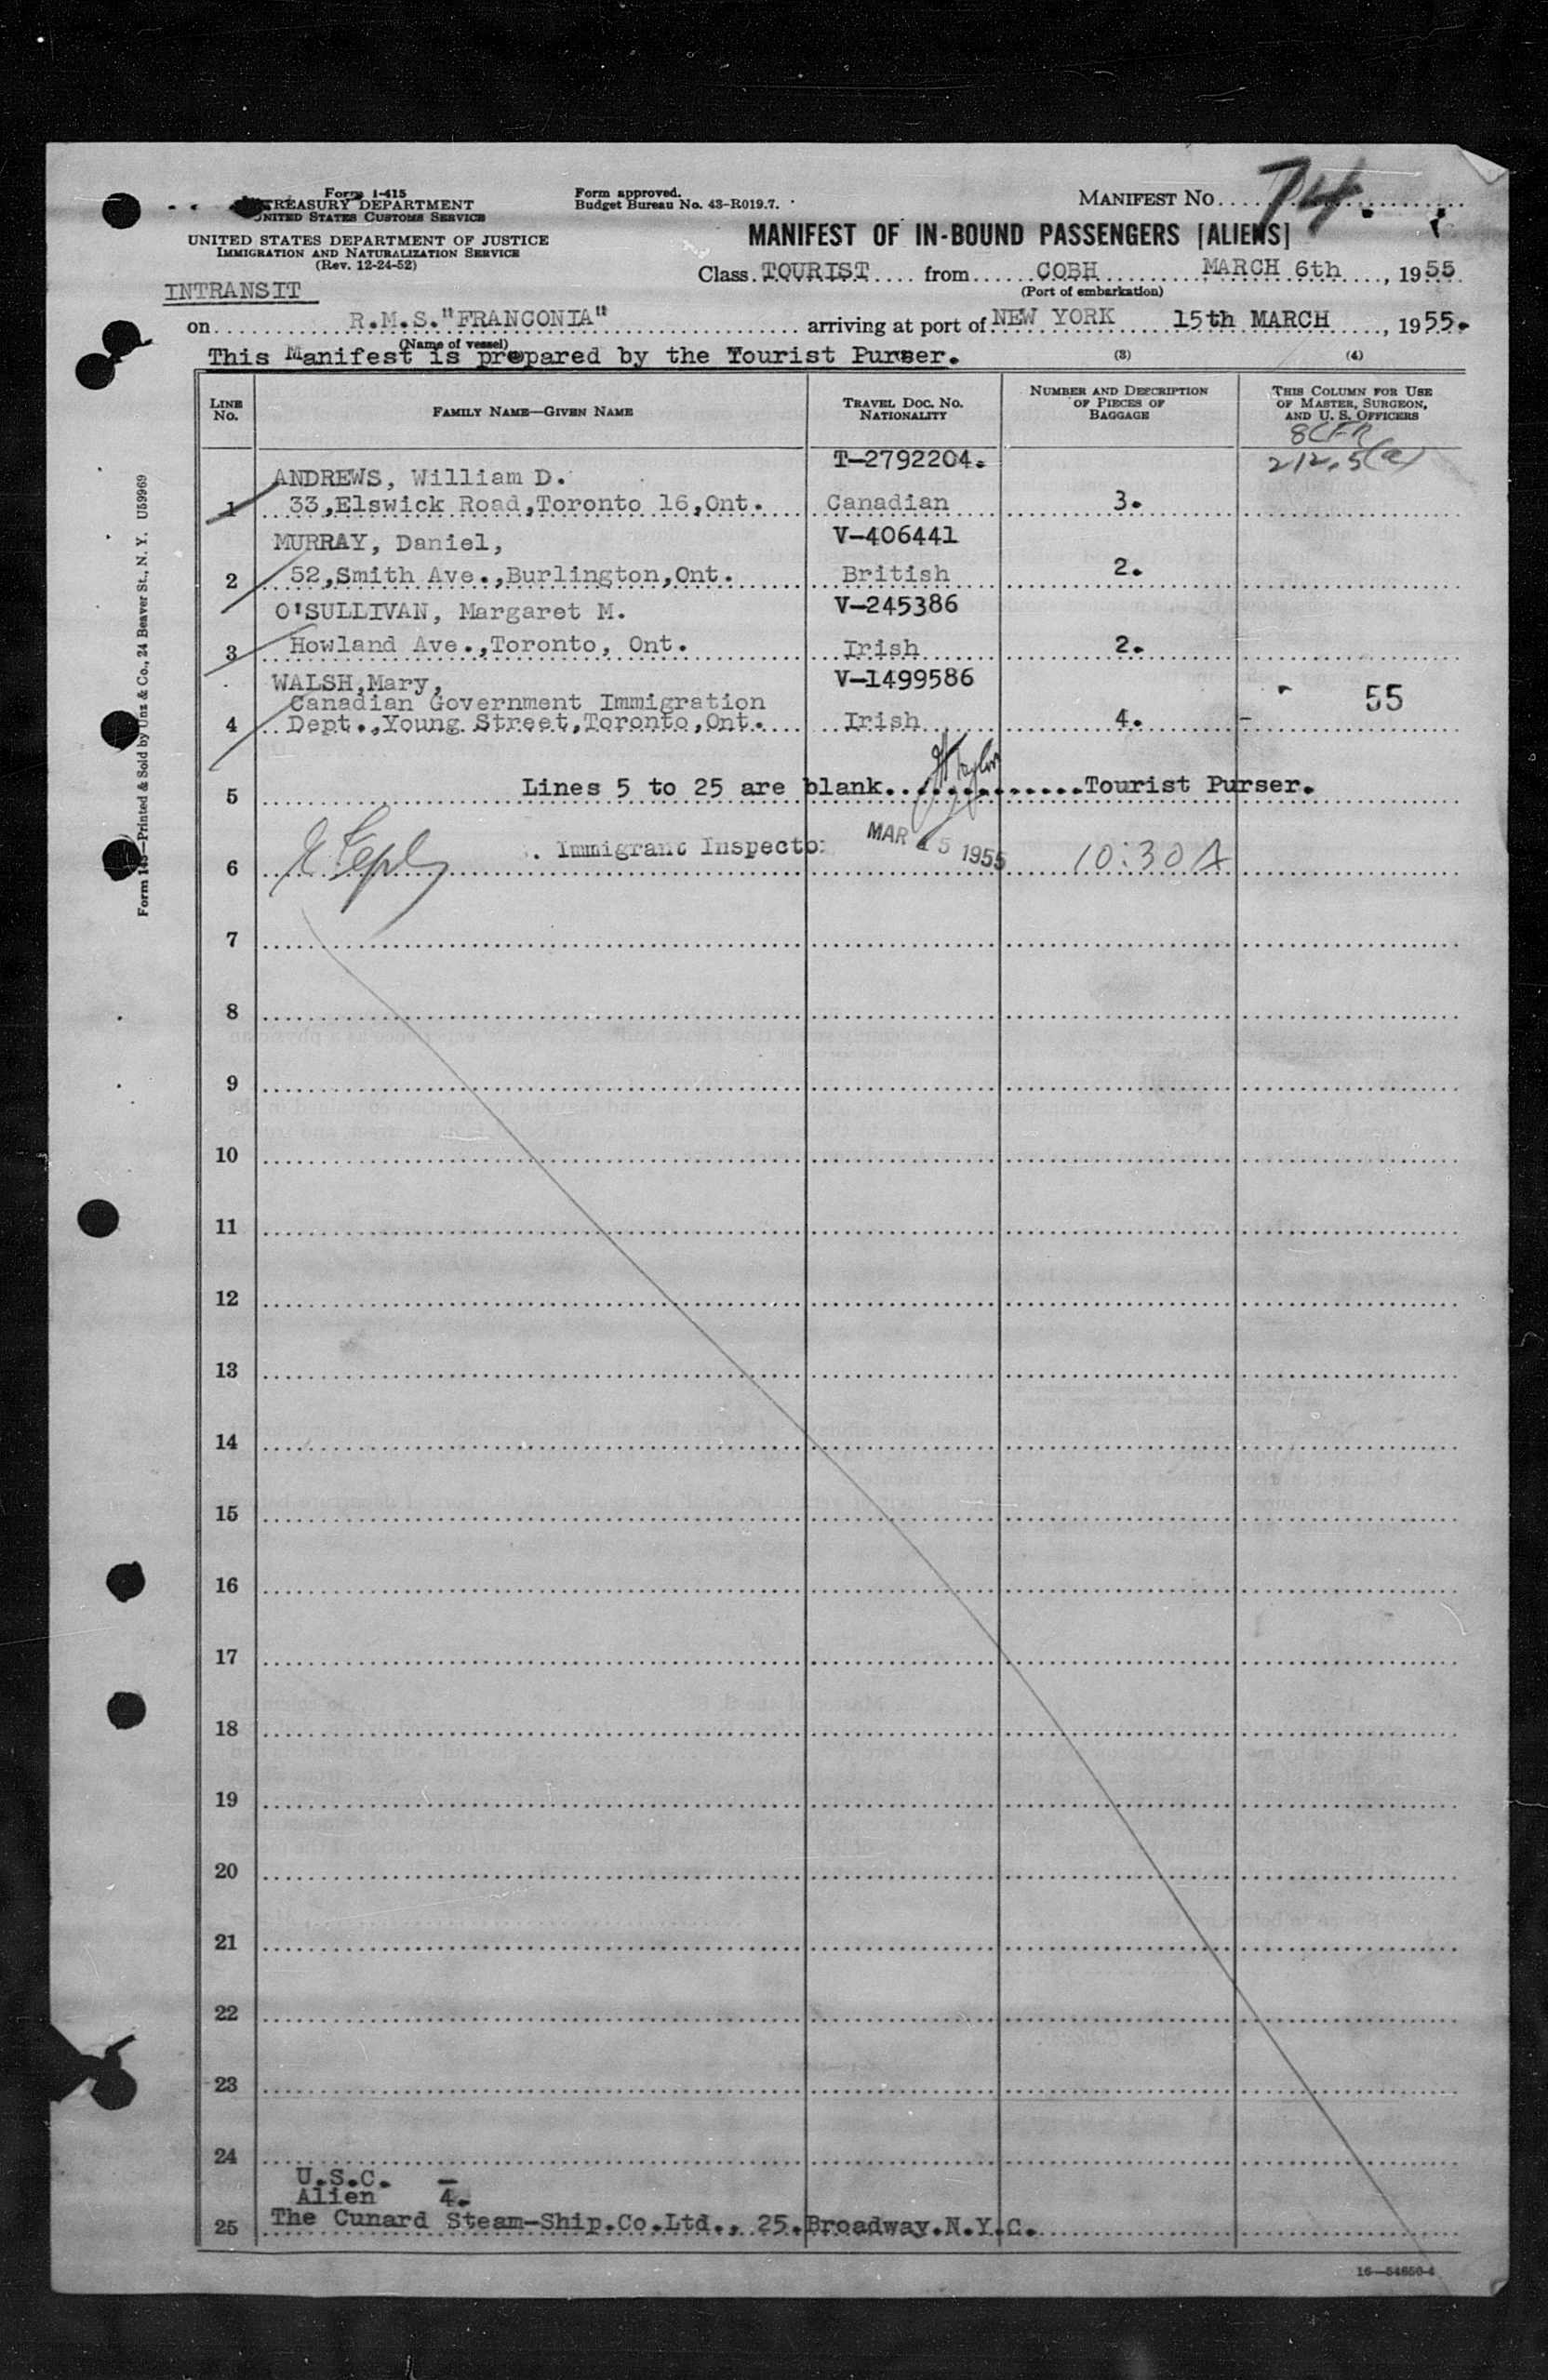 Form I-415
TREASURY DEPARTMENT
UNITED STATES CUSTOMS SERVICE
UNITED STATES DEPARTMENT OF JUSTICE
IMMIGRATION AND NATURALIZATION SERVICE
(Rev. 12-24-52)
Form approved.
Budget Bureau No. 43-R019.7.
MANIFEST NO. 74.
MANIFEST OF IN-BOUND PASSENGERS [ALIENS]
Class TOURIST from COBH MARCH 6th, 1955
(Port of embarkation)
INTRANSIT
on R.M.S."FRANCONIA" arriving at port of NEW YORK 15th MARCH, 1955.
(Name of vessel)
This Manifest is prepared by the Tourist Purser.
(3) (4)
LINE NO. FAMILY NAME—GIVEN NAME TRAVEL DOC. NO. NATIONALITY NUMBER AND DESCRIPTION OF PIECES OF BAGGAGE THIS COLUMN FOR USE OF MASTER, SURGEON, AND U. S. OFFICERS
8CFR
212.5(a)
ANDREWS, William D. T-2792204.
1 33,Elswick Road,Toronto 16,Ont. Canadian 3.
MURRAY, Daniel, V-406441
2 52,Smith Ave.,Burlington,Ont. British 2.
O'SULLIVAN, Margaret M. V-245386
3 Howland Ave.,Toronto, Ont. Irish 2.
WALSH,Mary, V-1499586
Canadian Government Immigration 55
4 Dept.,Young Street,Toronto,Ont. Irish 4. -
5 Lines 5 to 25 are blank. Tourist Purser.
6 Immigrant Inspector MAR 15 1955 10:30A
7
8
9
10
11
12
13
14
15
16
17
18
19
20
21
22
23
24
U.S.C. —
Alien 4.
25 The Cunard Steam-Ship.Co.Ltd., 25.Broadway.N.Y.C.
16—54650-4
Form 148—Printed & Sold by Unz & Co., 24 Beaver St., N. Y. U59969